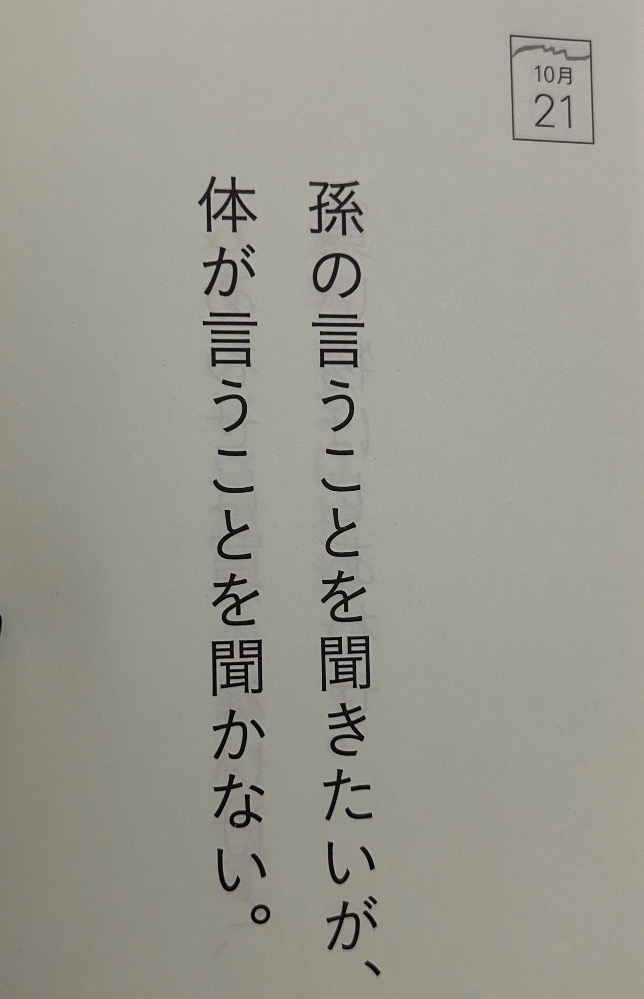 10月
21
孫の言うことを聞きたいが、
体が言うことを聞かない。